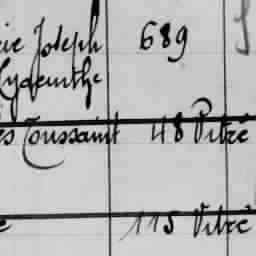 Joseph 689
Hyacinthe
Toussaint 48 Vitré
115 Vitré